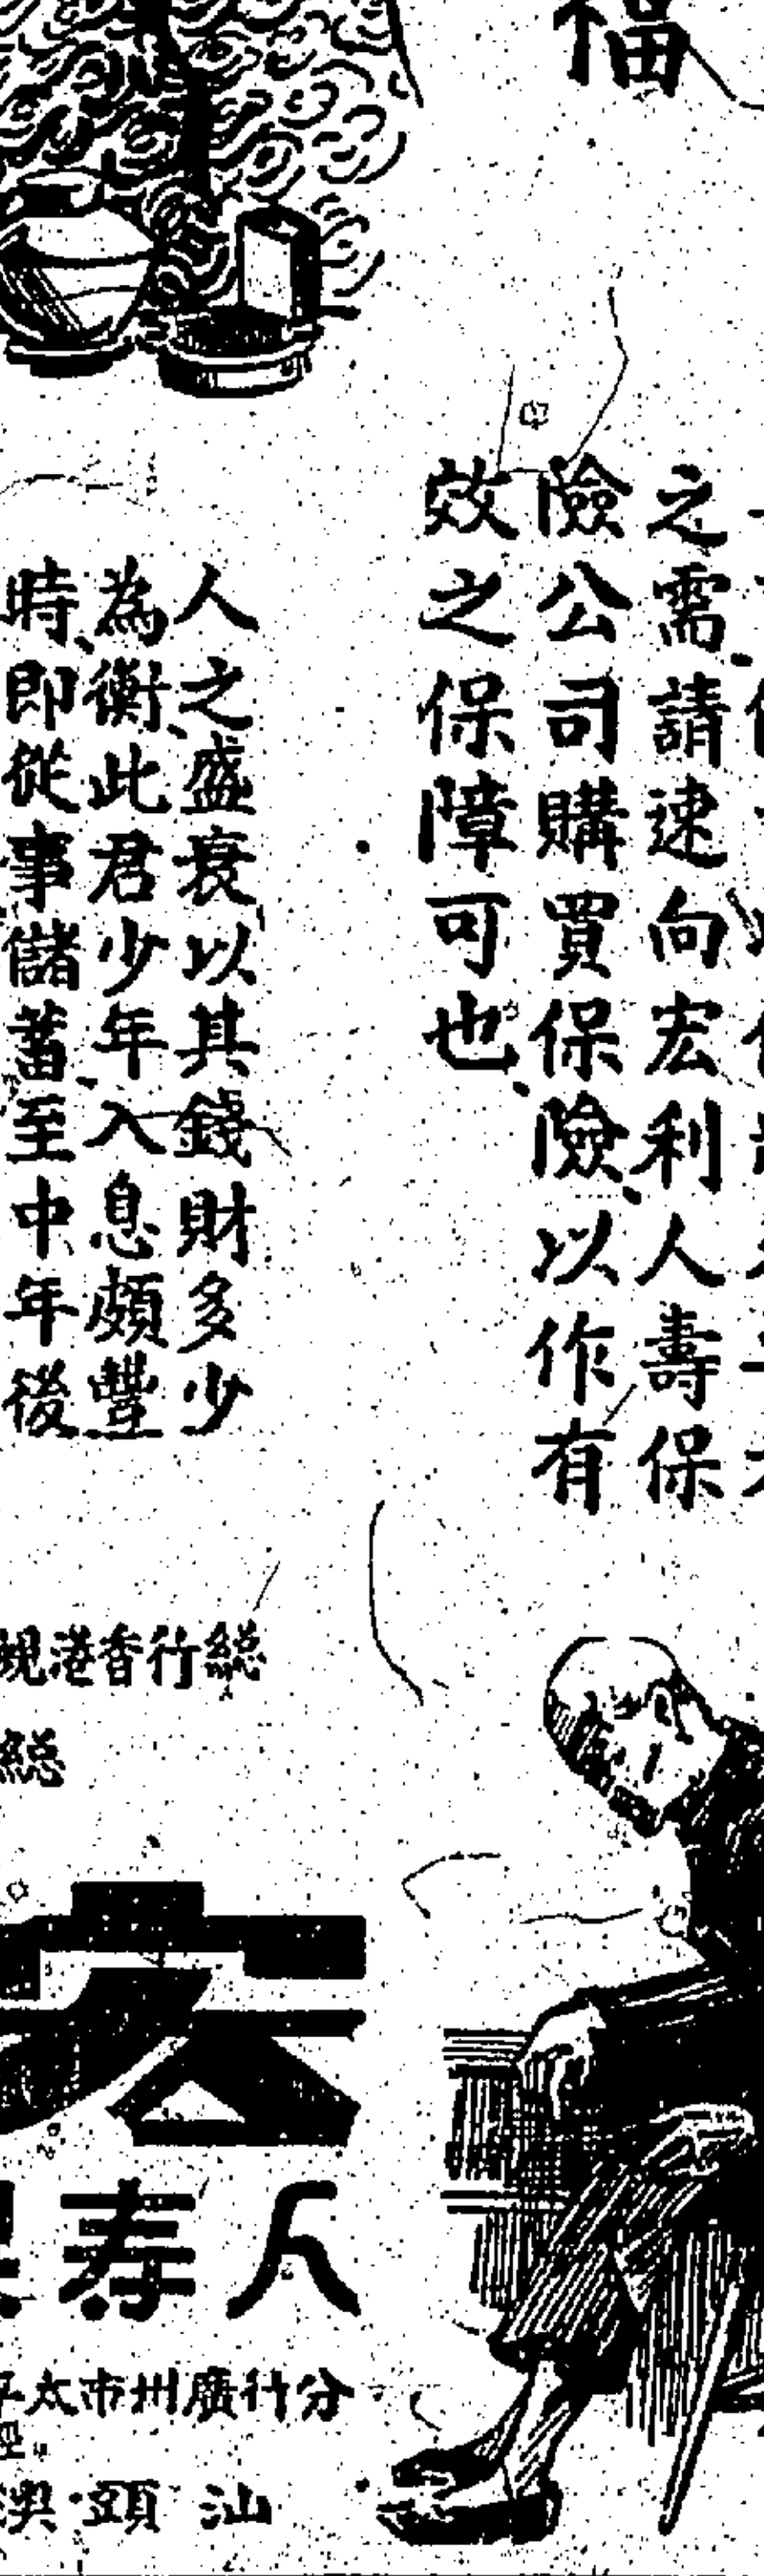 福
之需請速向宏利人壽保
險公司購買保險、以作有
效之保障可也、
人之盛衰以其錢財多少
為衡、此君少年入息頗豐
時、即從事儲蓄、至中年後
総行香港
総
宏
人寿
分行廣州市太平
汕頭·澳